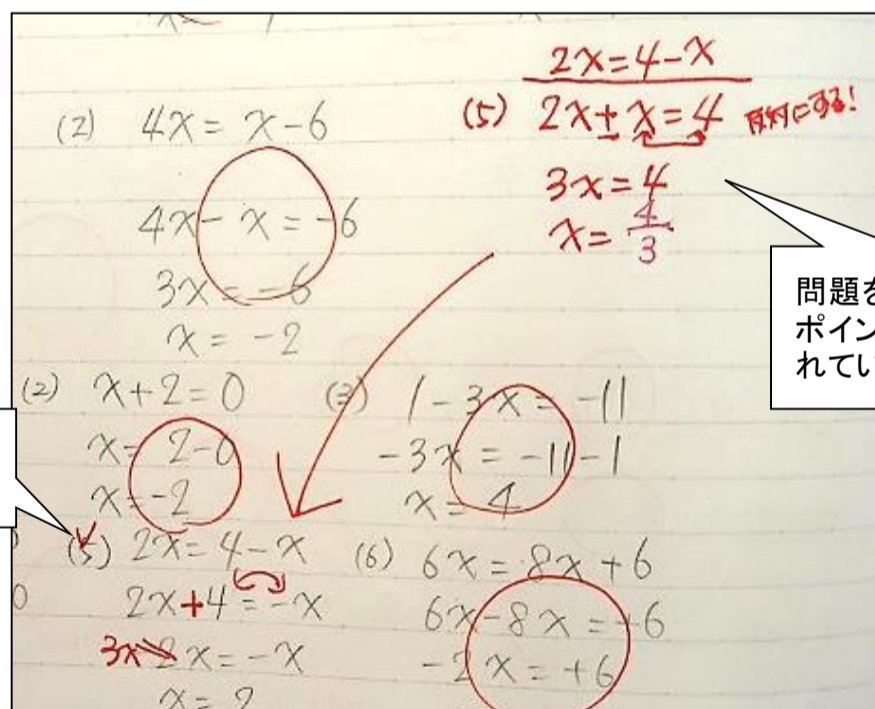 (2) 4x = x-6
4x - x = -6
3x = -6
x = -2
2x=4-x
(5) 2x+x=4 反対にする!
3x=4
x= 4/3
問題を
ポイン
れてい
(2) x+2=0
x= 2-0
x=-2
(3) 1-3x= -11
-3x = -11-1
x = 4
(5) 2x= 4-x
2x+4=-x
3x 2x=-x
x= 2
(6) 6x = 8x+6
6x-8x = +6
-2x = +6